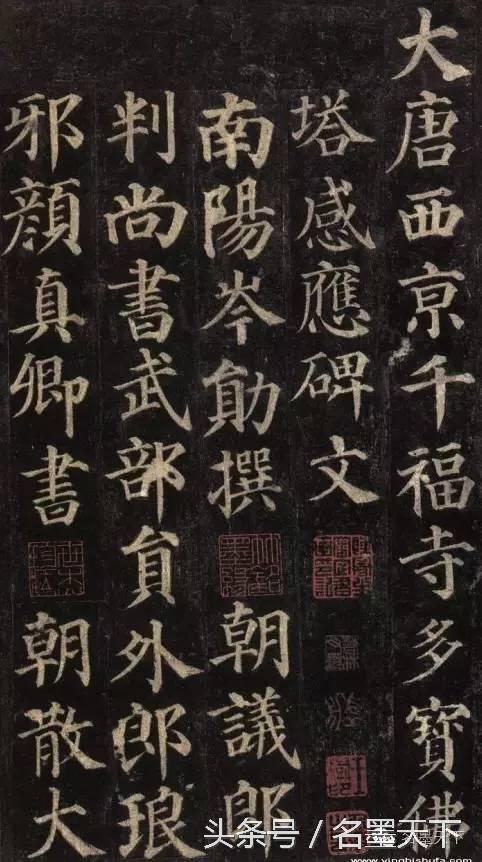 大唐西京千福寺多寶佛
塔感應碑文
南陽岑勛撰 朝議郎
判尚書武部員外郎琅
邪顏真卿書 朝散大
头条号 / 名墨天下
www.yingbishufa.com